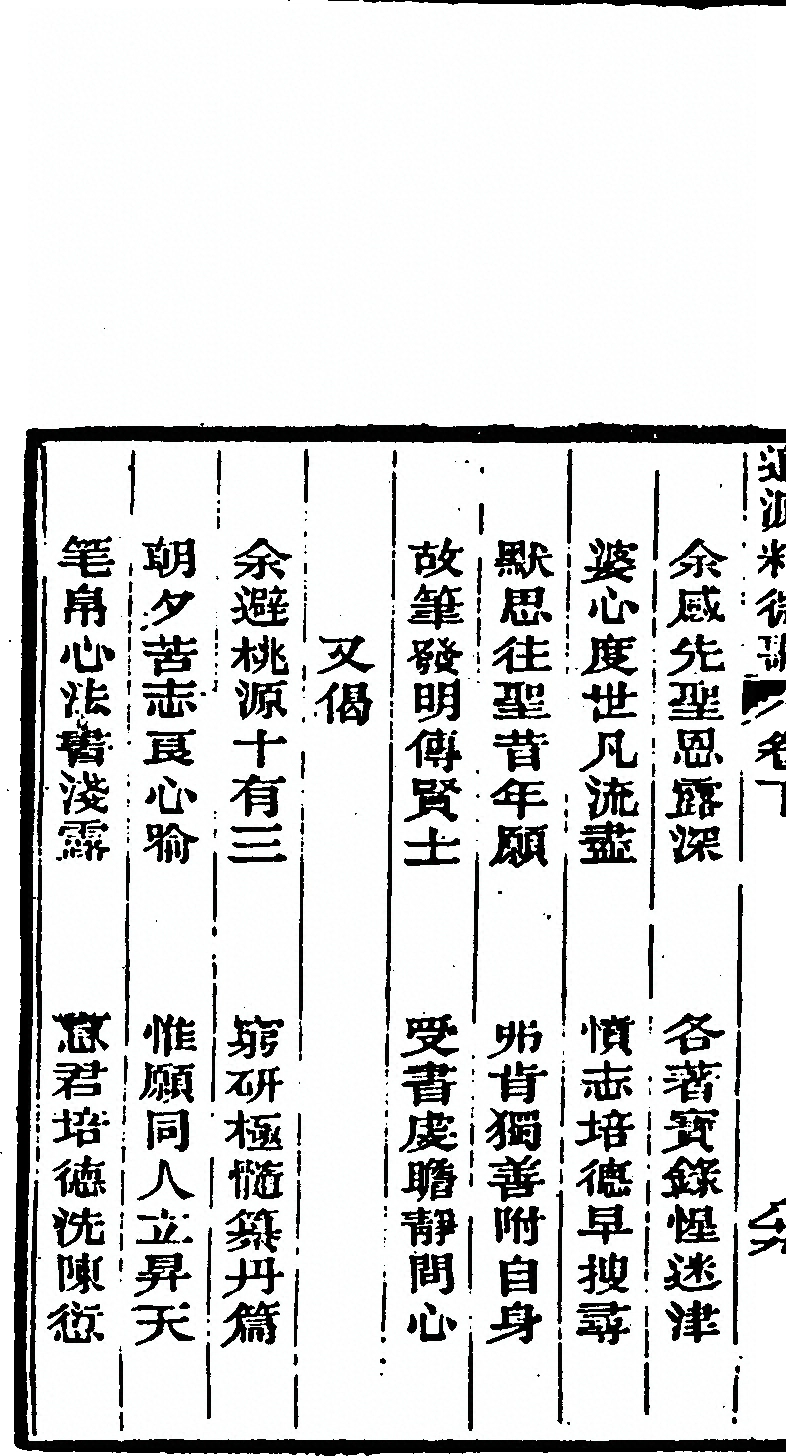 源精微歌 卷下
余感先聖恩露深 各著寶錄惺迷津
婆心度世凡流盡 憤志培德早搜尋
默思往聖昔年願 弗肯獨善附自身
故筆發明傳賢士 受書虔瞻靜問心
又偈
余避桃源十有三 窮研極髓纂丹篇
朝夕苦志良心喻 惟願同人立昇天
笔帛心法書淺露 君培德洗陳愆